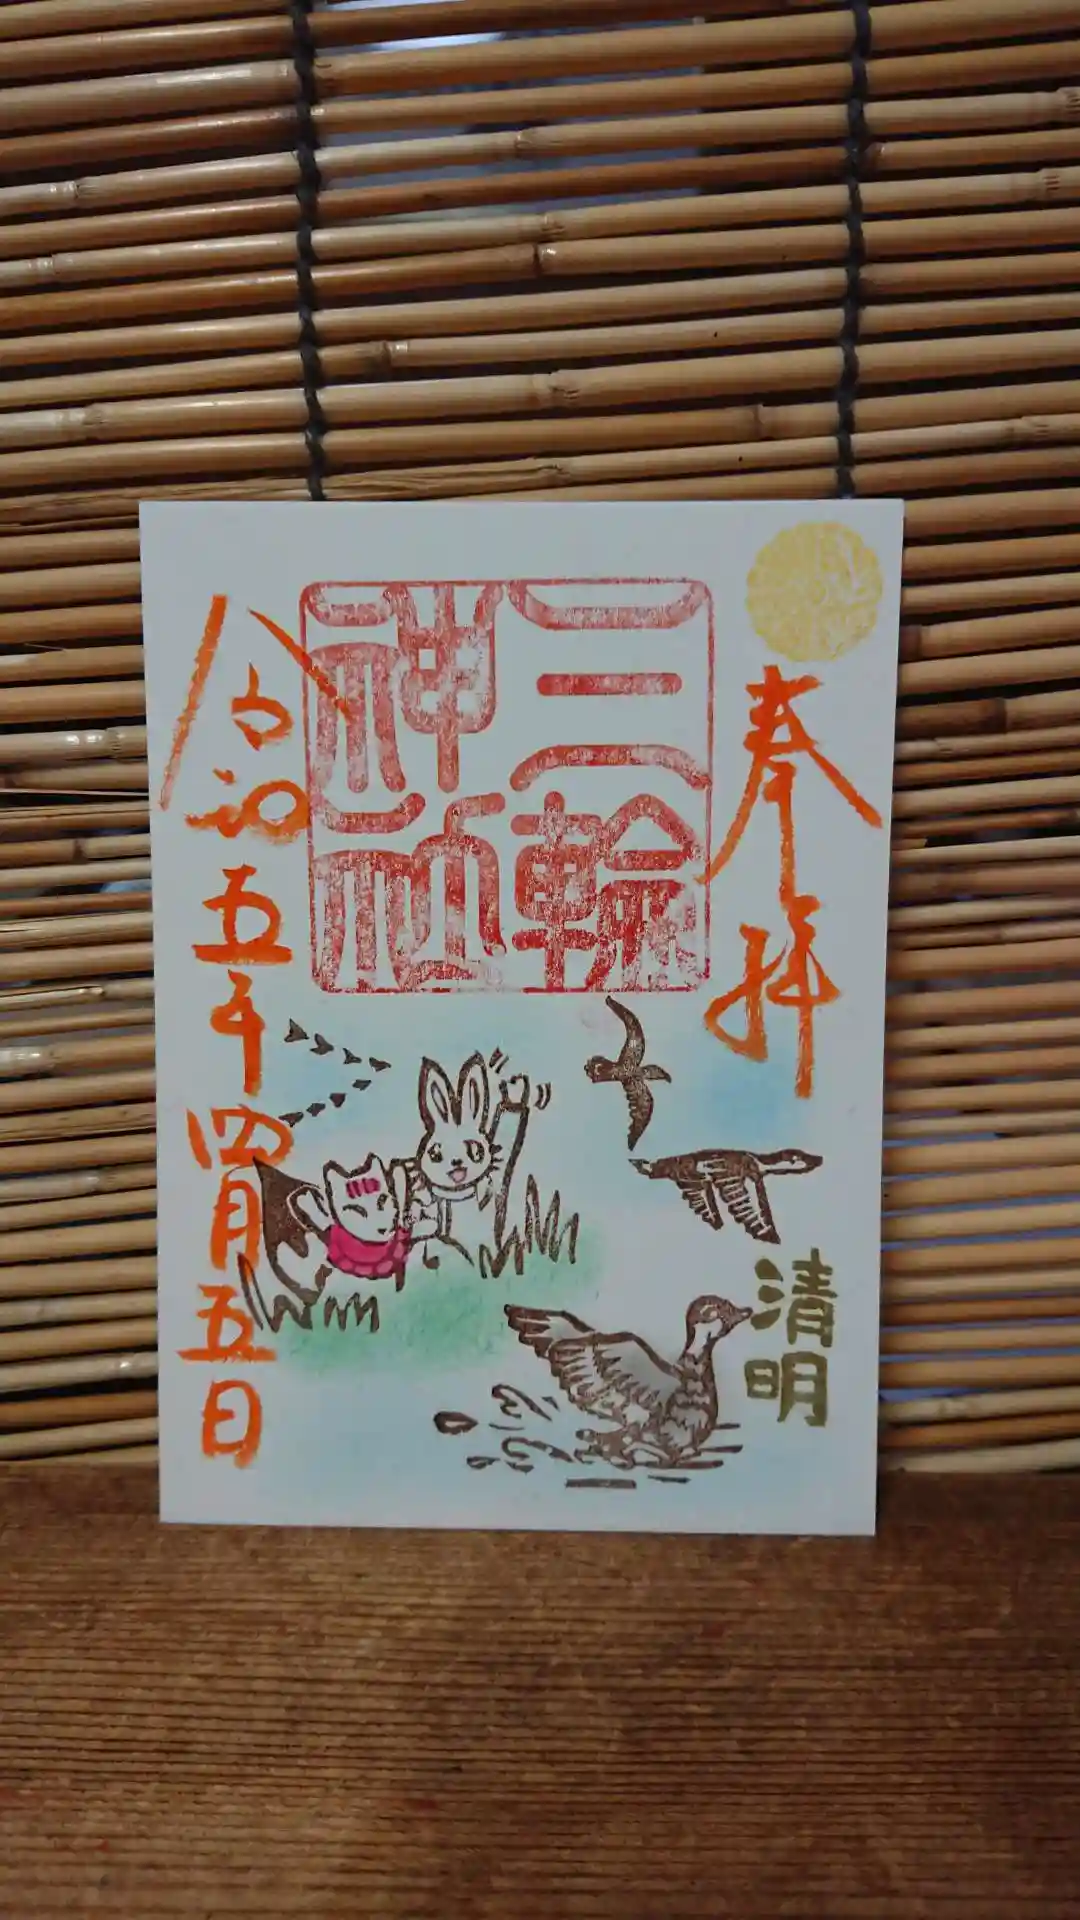 奉拝
三輪
神社
清明
令和五年四月五日